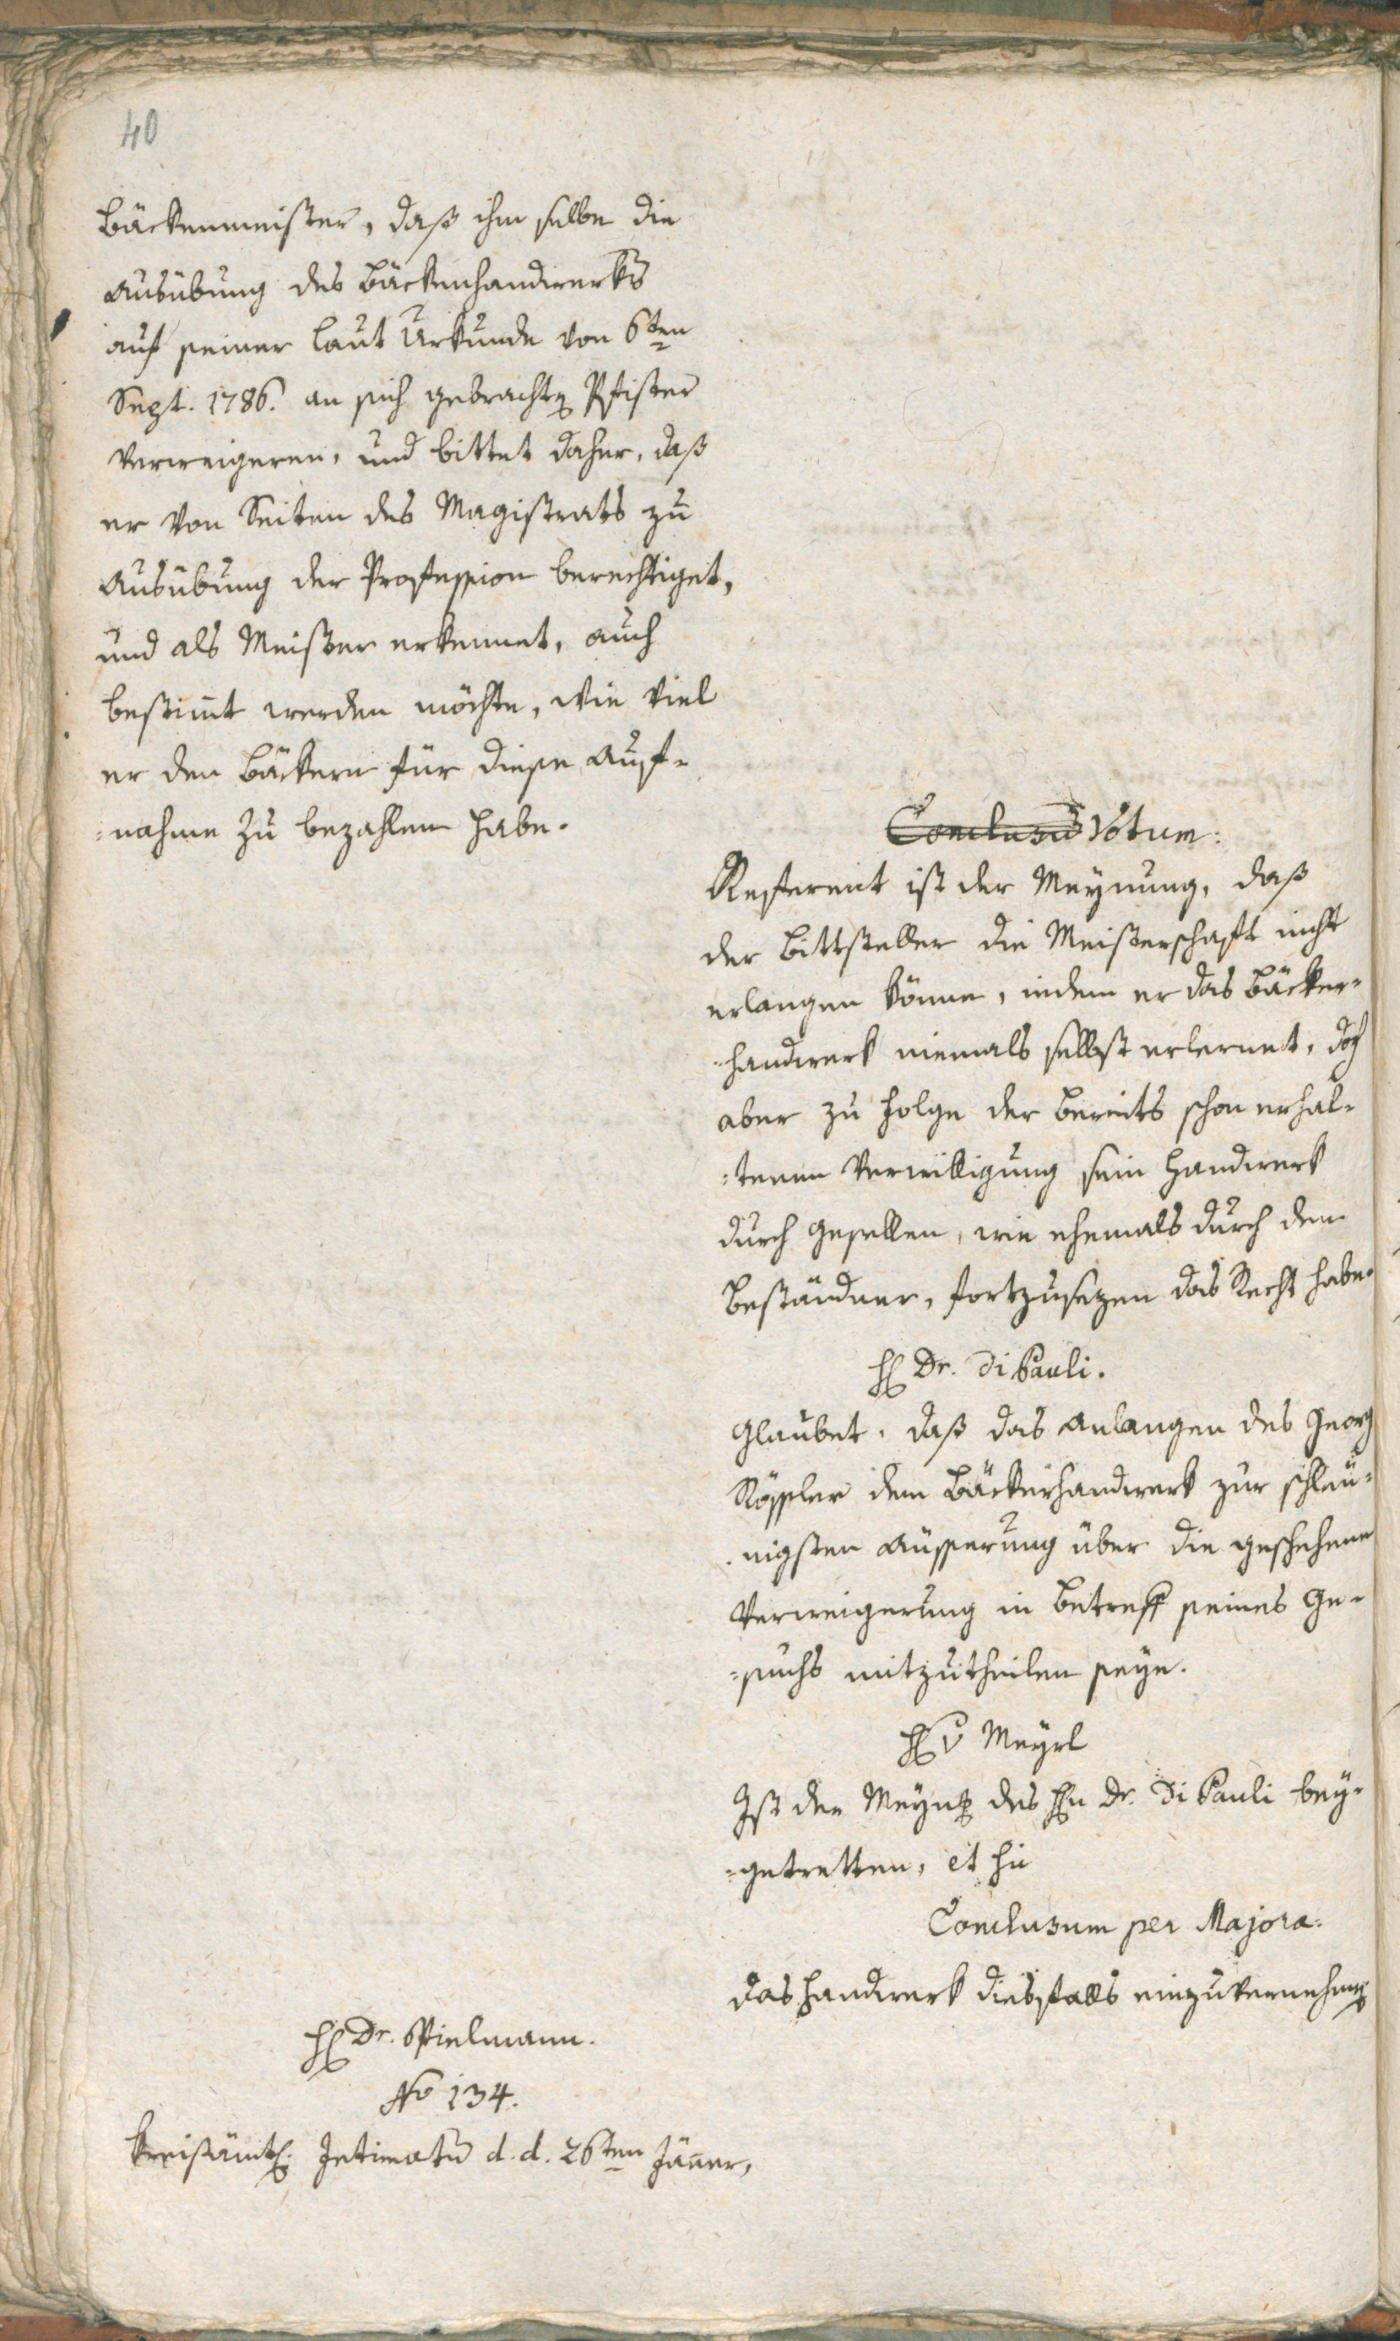 40
Bäckenmeister, daß ihm selbe die
Ausübung des Bäckenhandwerks
auf seiner laut Urkunde von 6ten
Sept. 1786. an sich gebrachten Pfister
verweigeren, und bittet daher, daß
er von Seiten des Magistrats zu
Ausübung der Profession berechtiget,
und als Meister erkennet, auch
bestim̄t werden möchte, wie viel
er den Bäckern für diese Auf-
=nahme zu bezahlen habe.
Conclusū Votum:
Referent ist der Meynung, daß
der Bittsteller die Meisterschaft nicht
erlangen könne, indem er das Bäcker-
=handwerk niemals selbst erlernet, doch
aber zu Folge der bereits schon erhal-
=tenen Verwilligung sein Handwerk
durch Gesellen, wie ehemals durch den
Beständner, fortzusezen das Recht habe.
H Dr. Di Pauli.
Glaubet, daß das Anlangen des Georg
Rössler dem Bäckerhandwerk zur schleu-
=nigsten Äusserung über die geschehene
Verweigerung in Betreff seines Ge-
=suchs mitzutheilen seye.
H v Meyrl
Ist der Meynung des Hn Dr. Di Pauli bey-
=getretten, et hin
Conclusum per Majora:
Das Handwerk diesfalls einzuvernehmen
H Dr. Spielmann.
No 134.
Kreisämtl. Intimatū d. d. 26ten Jäner,